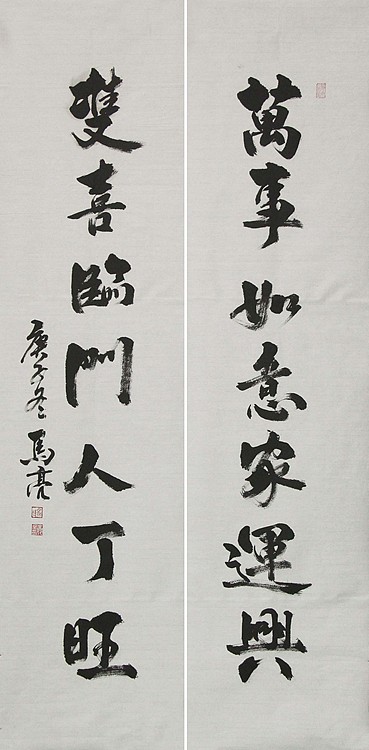 萬事如意家運興
雙喜臨門人丁旺
庚子冬馬亮